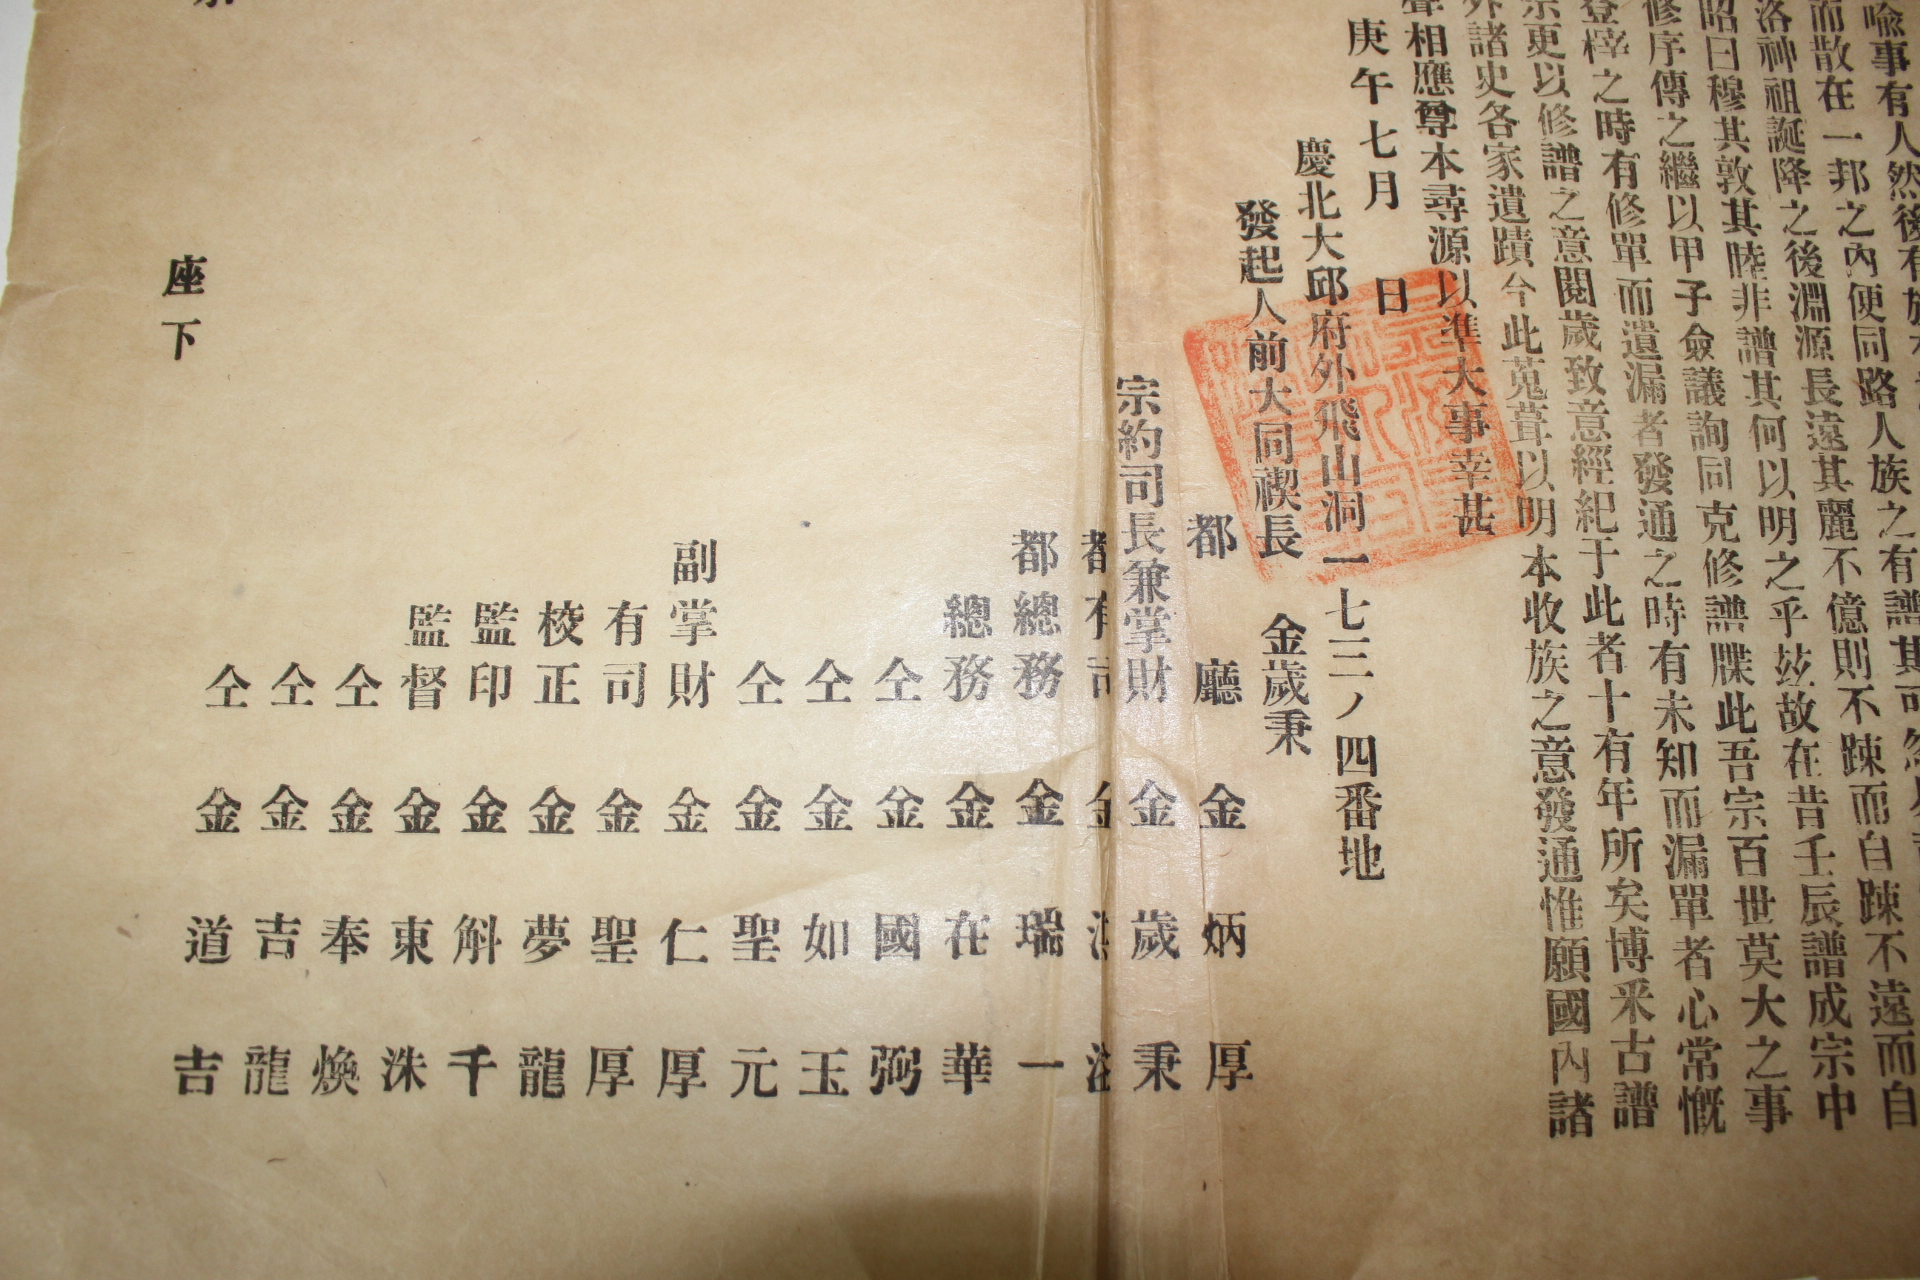 喩事有人然後有族
而散在一邦之內便同路人族之有譜其可
洛神祖誕降之後淵源長遠其麗不億則不踈而自踈不遠而自
昭曰穆其敦其睦非譜其何以明之乎玆故在昔壬辰譜成宗中
修序傳之繼以甲子僉議詢同克修譜牒此吾宗百世莫大之事
登梓之時有修單而遺漏者發通之時有未知而漏單者心常慨
宗更以修譜之意閱歲致意經紀于此者十有年所矣博釆古譜
外諸史各家遺蹟今此蒐葺以明本收族之意發通惟願國內諸
聲相應尊本尋源以準大事幸甚
庚午七月 日
慶北大邱府外飛山洞一七三ノ四番地
發起人前大同禊長 金歲秉
都廳 金炳厚
宗約司長兼掌財 金歲秉
都有司 金
都總務 金瑞一
總務 金在華
仝 金國弼
仝 金如玉
仝 金聖元
副掌財 金仁厚
有司 金聖厚
校正 金夢龍
監印 金斛千
監督 金東洙
仝 金奉煥
仝 金吉龍
仝 金道吉
座下